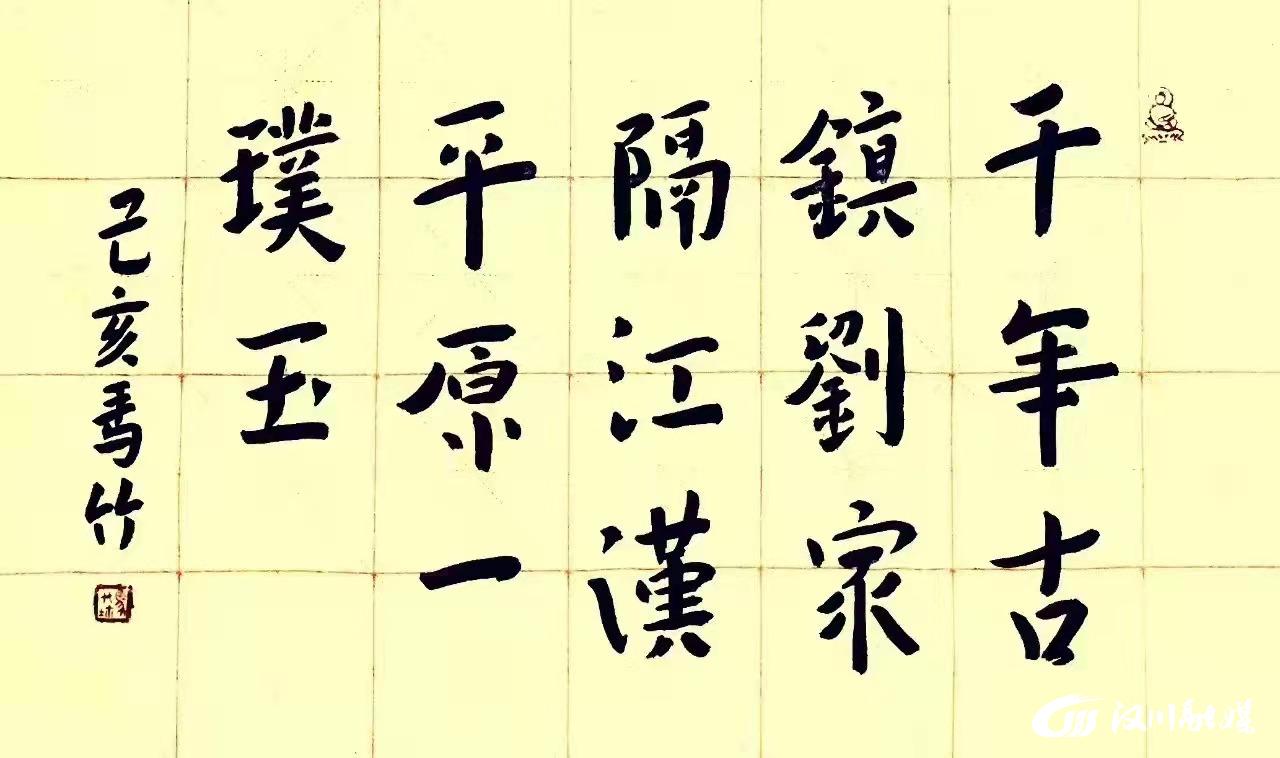 千年古
鎮劉家
隔江漢
平原一
璞玉
己亥馬竹
汉川融媒